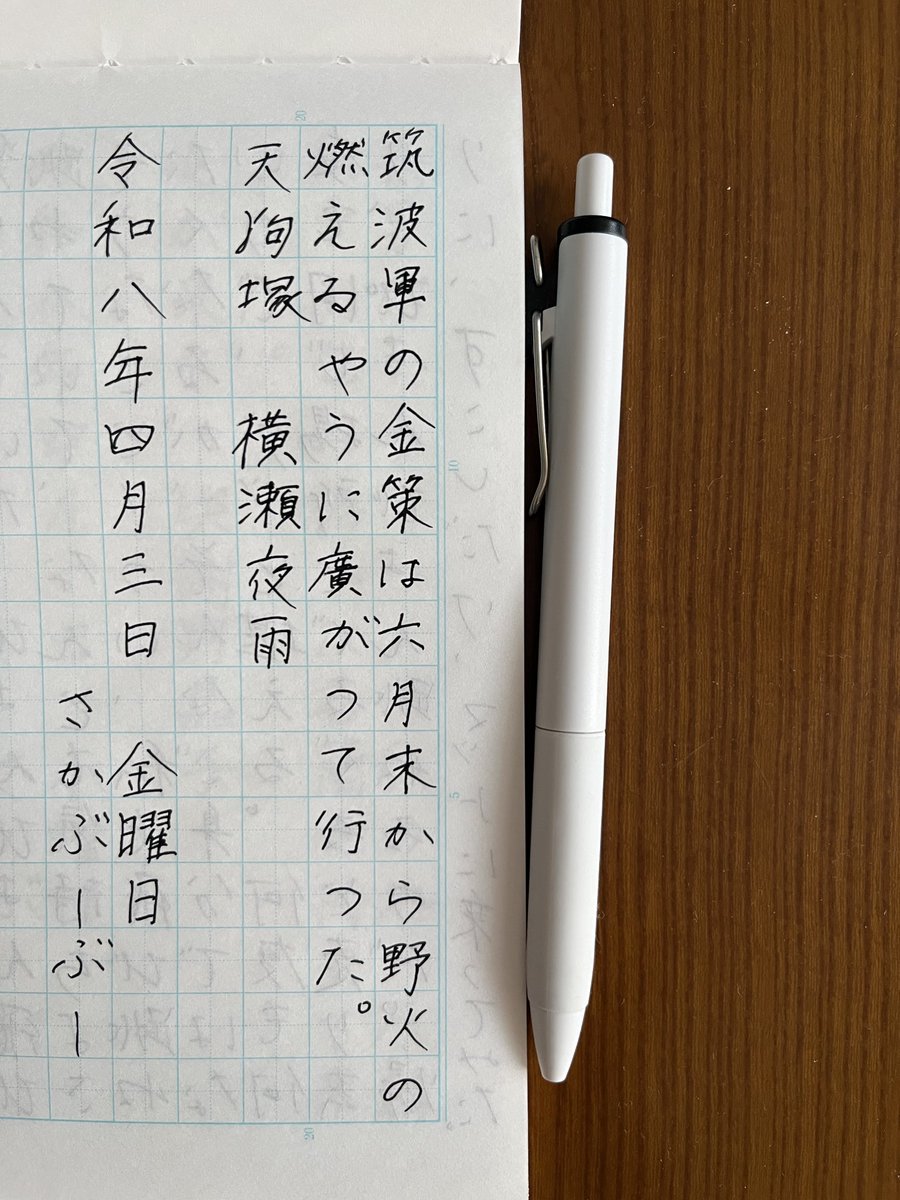 筑波軍の金策は六月末から野火の
燃えるやうに廣がつて行つた。
天狗塚　横瀬夜雨
令和八年四月三日　金曜日
さかぶーぶー
20
10
5
20